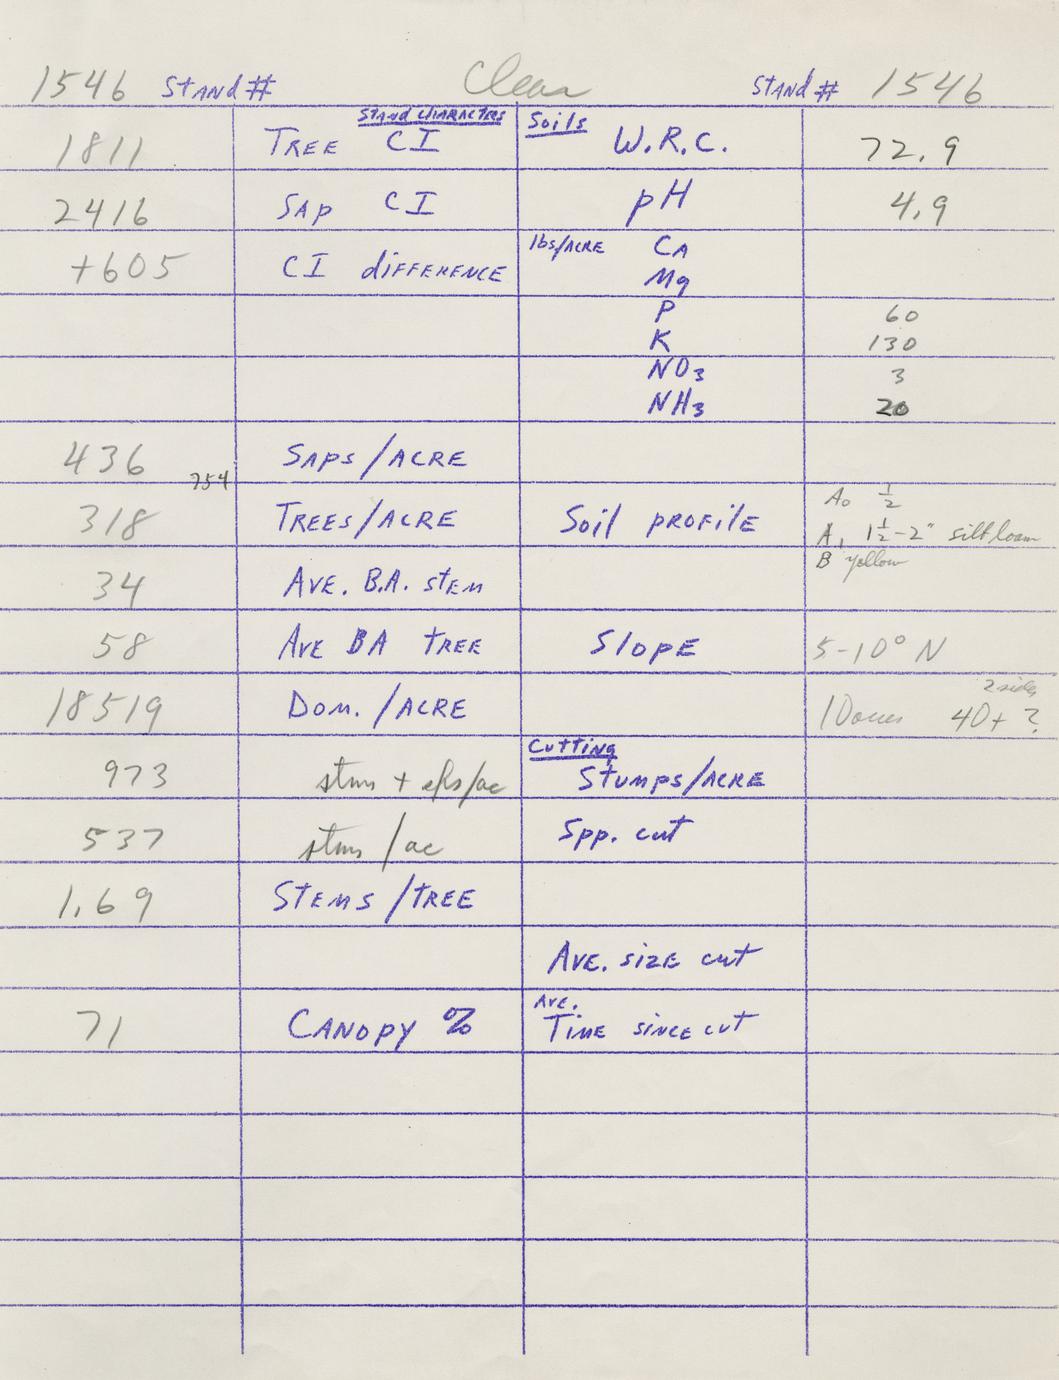 1546 Stand # Clear Stand # 1546
Stand characters Soils
1811 Tree CI W.R.C. 72.9
2416 Sap CI pH 4.9
+605 CI difference lbs/acre Ca
Mg
P 60
K 130
NO3 3
NH3 20
436 Saps/acre
754
318 Trees/acre Soil profile A0 1/2
A1 1 1/2-2" silt loam
B yellow
34 Ave. B.A. stem
58 Ave BA tree Slope 5-10° N
2 sides
18519 Dom./acre 10 acres 40+ ?
Cutting
973 stms + /ac Stumps/acre
537 stms/ac Spp. cut
1.69 Stems/tree
Ave. size cut
Ave.
71 Canopy % Time since cut